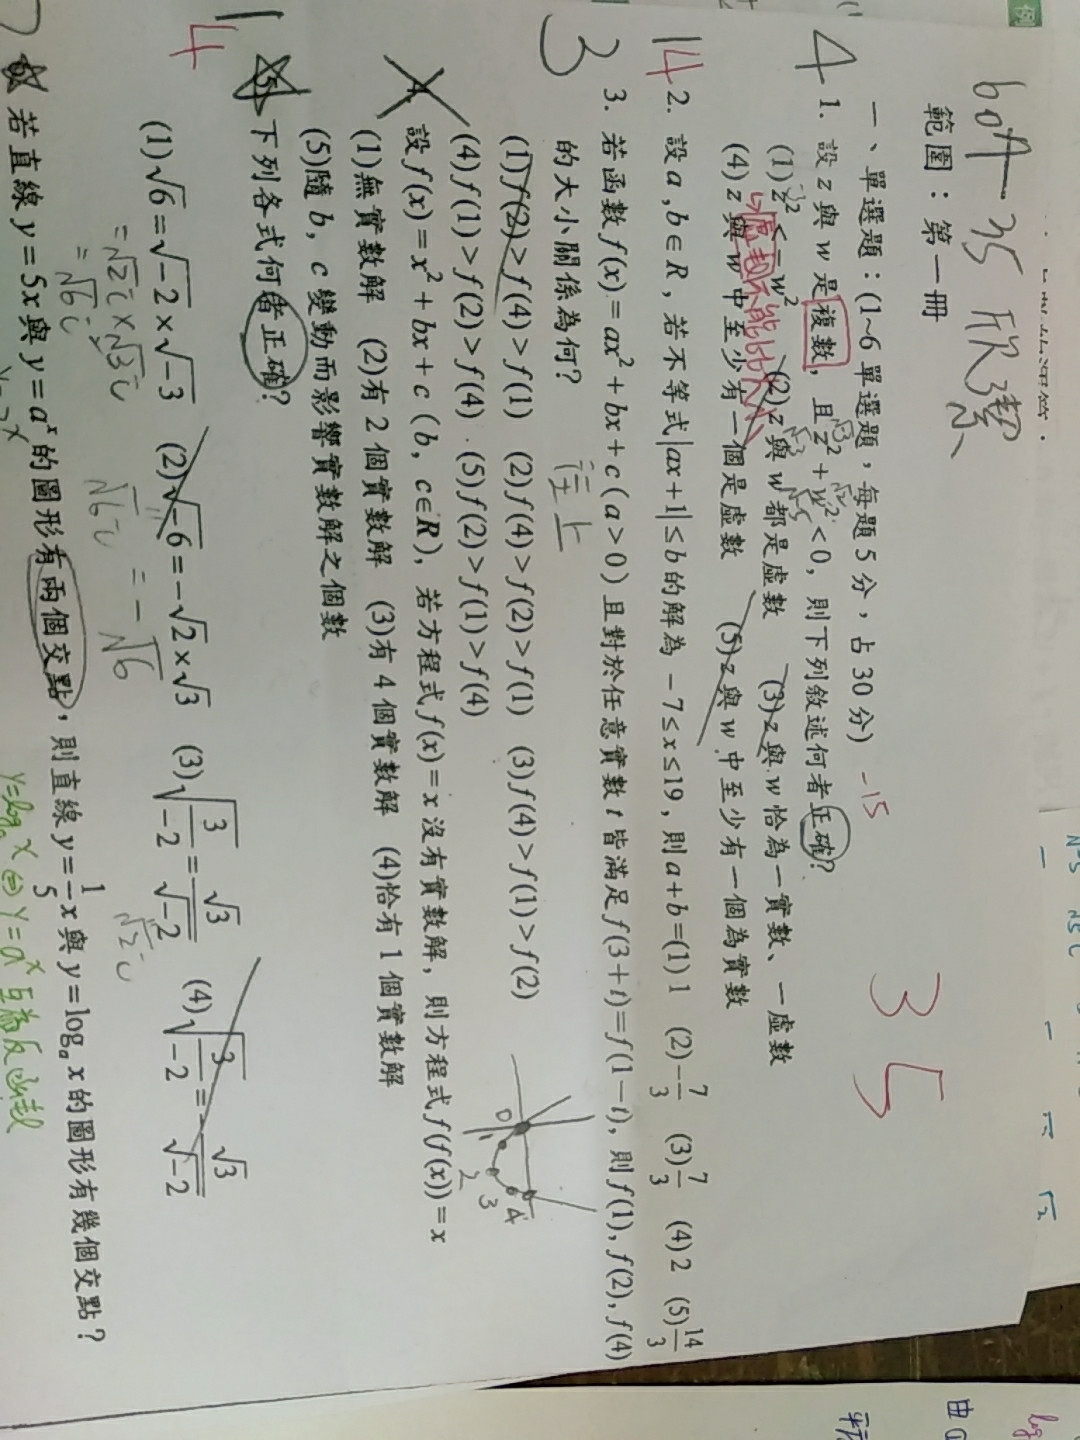 35 欣潔
範圍：第一冊
35
一、單選題：(1~6 單選題，每題 5 分，占 30 分) -15
4
1. 設 z 與 w 是複數，且 z² + w² < 0，則下列敘述何者正確？
(1) z² < − w² (2) z 與 w 都是虛數 (3) z 與 w 恰為一實數、一虛數
(4) z 與 w 中至少有一個是虛數 (5) z 與 w 中至少有一個為實數
虛數不能比大小
14
2. 設 a , b ∈ R，若不等式 |ax + 1| ≤ b 的解為 − 7 ≤ x ≤ 19，則 a + b = (1) 1 (2) − 7/3 (3) 7/3 (4) 2 (5) 14/3
3
3. 若函數 f(x) = ax² + bx + c ( a > 0 ) 且對於任意實數 t 皆滿足 f(3 + t) = f(1 − t)，則 f(1), f(2), f(4)
的大小關係為何？
往上
(1) f(2) > f(4) > f(1) (2) f(4) > f(2) > f(1) (3) f(4) > f(1) > f(2)
(4) f(1) > f(2) > f(4) (5) f(2) > f(1) > f(4)
0 1 2 3 4
4. 設 f(x) = x² + bx + c ( b, c ∈ R)，若方程式 f(x) = x 沒有實數解，則方程式 f(f(x)) = x
(1) 無實數解 (2) 有 2 個實數解 (3) 有 4 個實數解 (4) 恰有 1 個實數解
(5) 隨 b, c 變動而影響實數解之個數
1
4
5. 下列各式何者正確？
(1) √6 = √−2 × √−3 (2) √−6 = − √2 × √3 (3) √(3/−2) = √3/√−2 (4) √(3/−2) = − √3/√−2
= √2 i × √3 i
√6 i = − √6
√2 i
6. 若直線 y = 5x 與 y = aˣ 的圖形有兩個交點，則直線 y = 1/5 x 與 y = logₐ x 的圖形有幾個交點？
y = logₐ x ⇔ y = aˣ 互為反函數